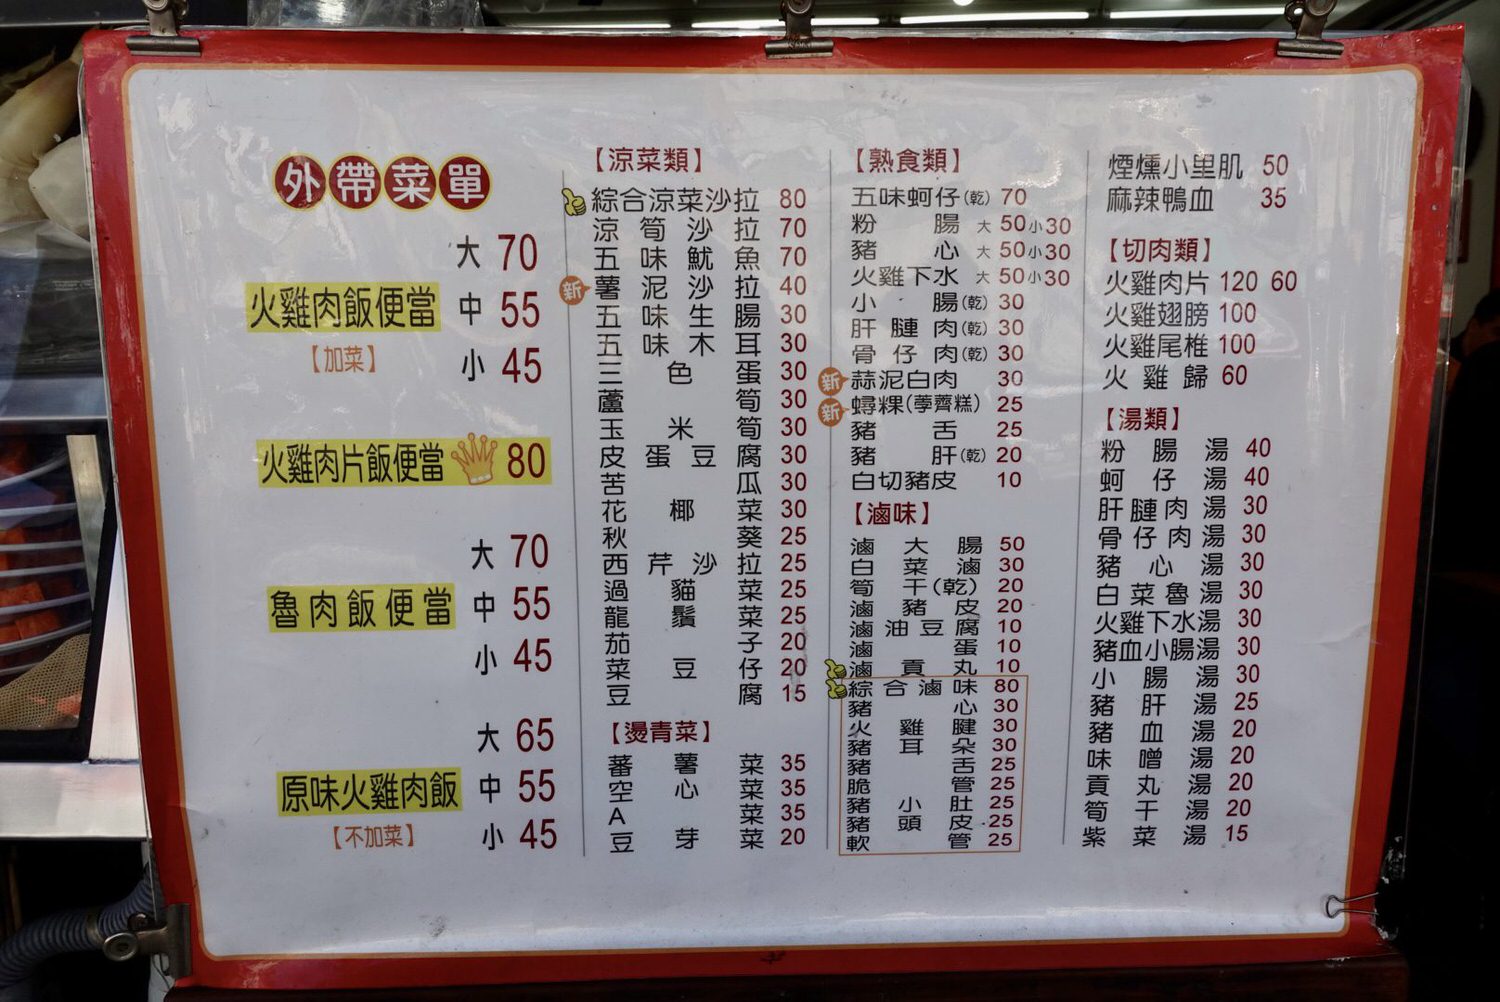 外帶菜單
大 70
火雞肉飯便當 中 55
【加菜】 小 45
火雞肉片飯便當 80
大 70
魯肉飯便當 中 55
小 45
大 65
原味火雞肉飯 中 55
【不加菜】 小 45
【涼菜類】
綜合涼菜沙拉 80
涼筍沙拉 70
五味魷魚 70
新 薯泥沙拉 40
五味生腸 30
五味木耳 30
三色蛋 30
蘆筍 30
玉米筍 30
皮蛋豆腐 30
苦瓜 30
花椰菜 30
秋葵 25
西芹沙拉 25
過貓菜 25
龍鬚菜 25
茄子 20
菜豆仔 20
豆腐 15
【燙青菜】
蕃薯菜 35
空心菜 35
A菜 35
豆芽菜 20
【熟食類】
五味蚵仔(乾) 70
粉腸 大 50 小 30
豬心 大 50 小 30
火雞下水 大 50 小 30
小腸(乾) 30
肝腱肉(乾) 30
骨仔肉(乾) 30
新 蒜泥白肉 30
新 蟳粿(荸薺糕) 25
豬舌 25
豬肝(乾) 20
白切豬皮 10
【滷味】
滷大腸 50
白菜滷 30
筍干(乾) 20
滷豬皮 20
滷油豆腐 10
滷蛋 10
滷貢丸 10
綜合滷味 80
豬心 30
火雞腱 30
豬耳朵 30
豬舌 25
脆管 25
豬小肚 25
豬頭皮 25
軟管 25
煙燻小里肌 50
麻辣鴨血 35
【切肉類】
火雞肉片 120 60
火雞翅膀 100
火雞尾椎 100
火雞歸 60
【湯類】
粉腸湯 40
蚵仔湯 40
肝腱肉湯 30
骨仔肉湯 30
豬心湯 30
白菜魯湯 30
火雞下水湯 30
豬血小腸湯 30
小腸湯 30
豬肝湯 25
豬血湯 20
味噌湯 20
貢丸湯 20
筍干湯 20
紫菜湯 15